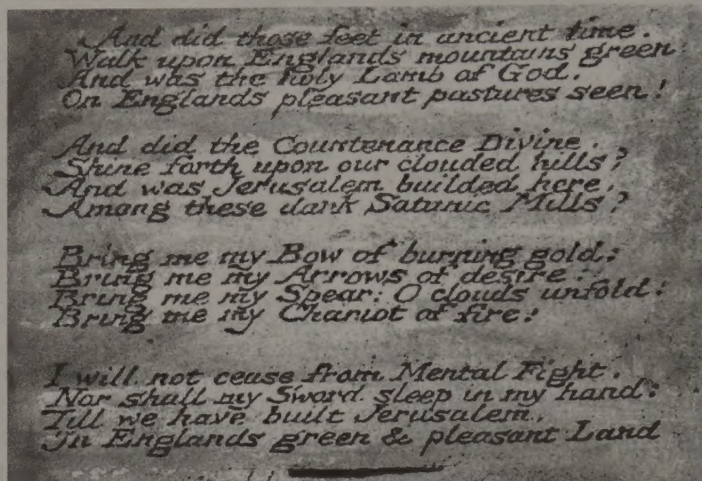 And did those feet in ancient time.
Walk upon Englands mountains green:
And was the holy Lamb of God.
On Englands pleasant pastures seen!
And did the Countenance Divine.
Shine forth upon our clouded hills?
And was Jerusalem builded here.
Among these dark Satanic Mills?
Bring me my Bow of burning gold:
Bring me my Arrows of desire:
Bring me my Spear: O clouds unfold:
Bring me my Chariot of fire:
I will not cease from Mental Fight.
Nor shall my Sword sleep in my hand:
Till we have built Jerusalem.
In Englands green & pleasant Land